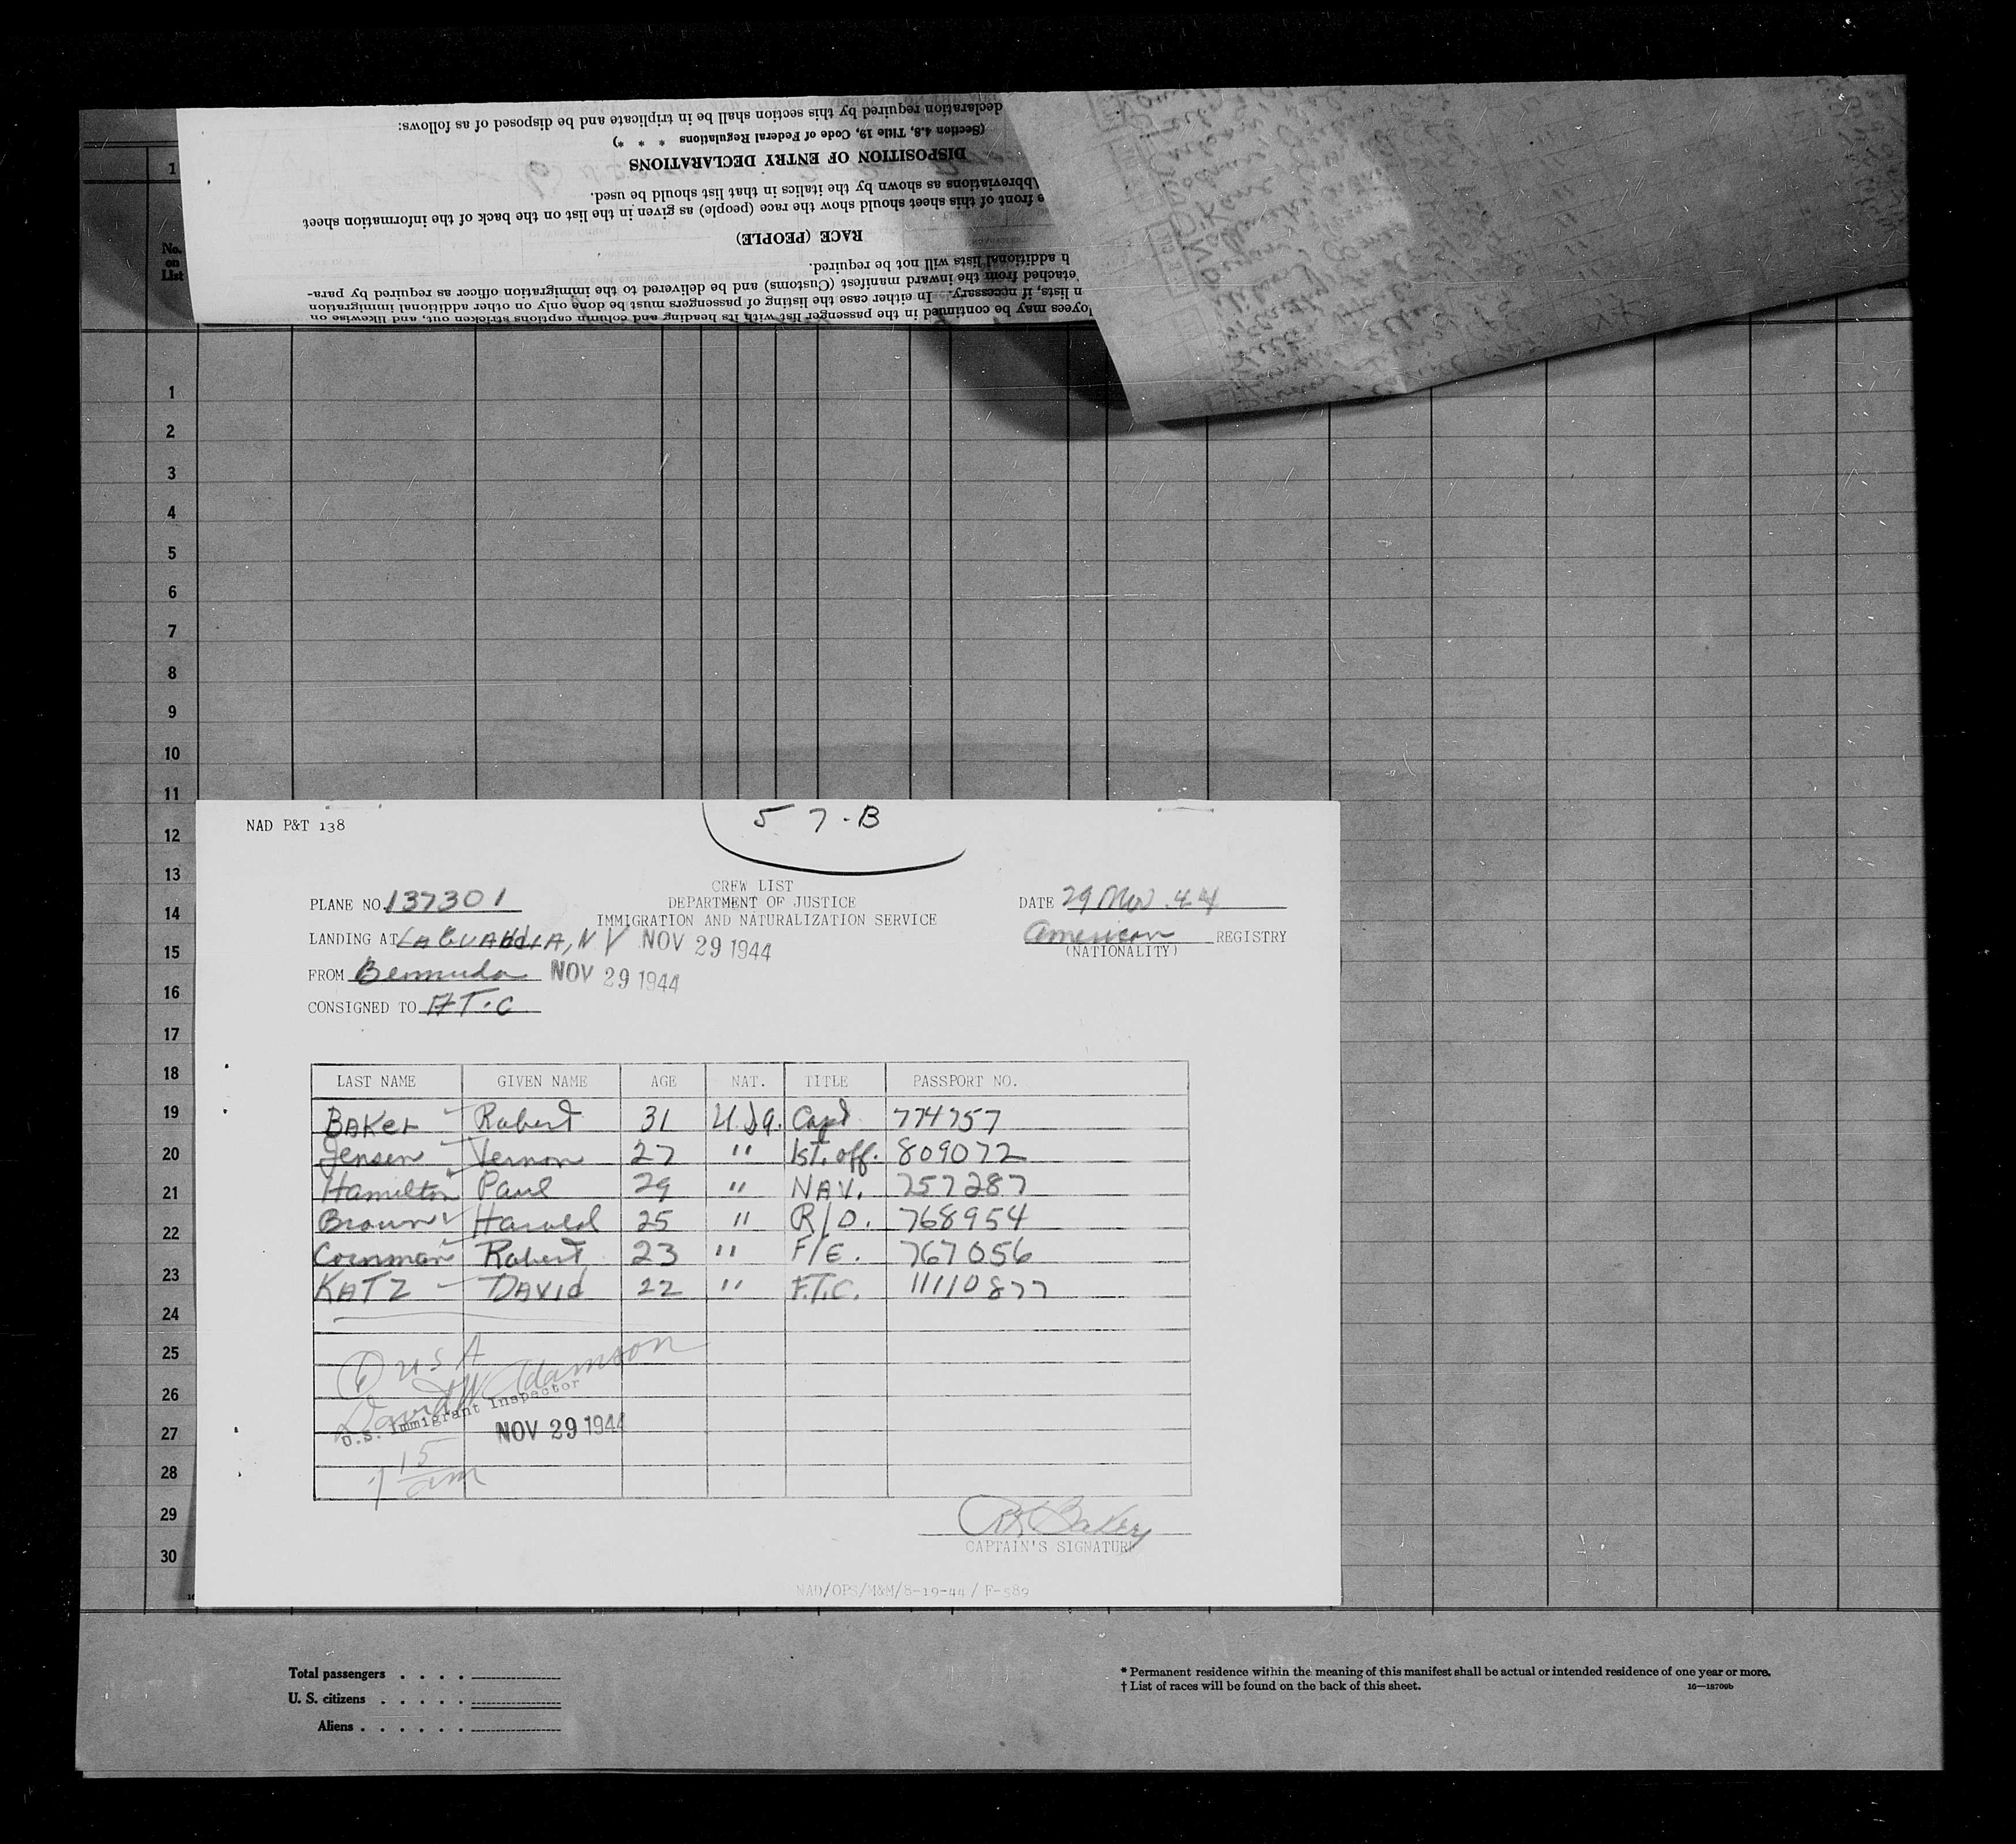 declaration required by this section shall be in triplicate and be disposed of as follows:
(Section 4.8, Title 19, Code of Federal Regulations * * *)
DISPOSITION OF ENTRY DECLARATIONS
Abbreviations as shown by the italics in that list should be used.
e front of this sheet should show the race (people) as given in the list on the back of the information sheet
RACE (PEOPLE)
h additional lists will not be required.
etached from the inward manifest (Customs) and be delivered to the immigration officer as required by para-
n lists, if necessary. In either case the listing of passengers must be done only on other additional immigration
oyees may be continued in the passenger list with its heading and column captions stricken out, and likewise on
1
No.
on
List
1
2
3
4
5
6
7
8
9
10
11
12
13
14
15
16
17
18
19
20
21
22
23
24
25
26
27
28
29
30
57-B
NAD P&T 138
CREW LIST
PLANE NO. 137301 DEPARTMENT OF JUSTICE DATE 29 Nov. 44
IMMIGRATION AND NATURALIZATION SERVICE
LANDING AT LAGUARDIA, NY NOV 29 1944 American REGISTRY
(NATIONALITY)
FROM Bermuda NOV 29 1944
CONSIGNED TO A.T.C
LAST NAME GIVEN NAME AGE NAT. TITLE PASSPORT NO.
BAKer Robert 31 U.S.A. Capt 774757
Jensen Vernon 27 " 1st. off. 809072
Hamilton Paul 29 " NAV. 757287
Brown Harold 25 " R/O. 768954
Cornman Robert 23 " F/E. 767056
KATZ DAVId 22 " F.T.C. 11110877
6 USA
David W Adamson
U.S. Immigrant Inspector
NOV 29 1944
7 15 am
R Baker
CAPTAIN'S SIGNATURE
NAD/OPS/M&M/8-19-44/ F-589
Total passengers . . . .
U. S. citizens . . . . .
Aliens . . . . . .
* Permanent residence within the meaning of this manifest shall be actual or intended residence of one year or more.
† List of races will be found on the back of this sheet. 16—18709b